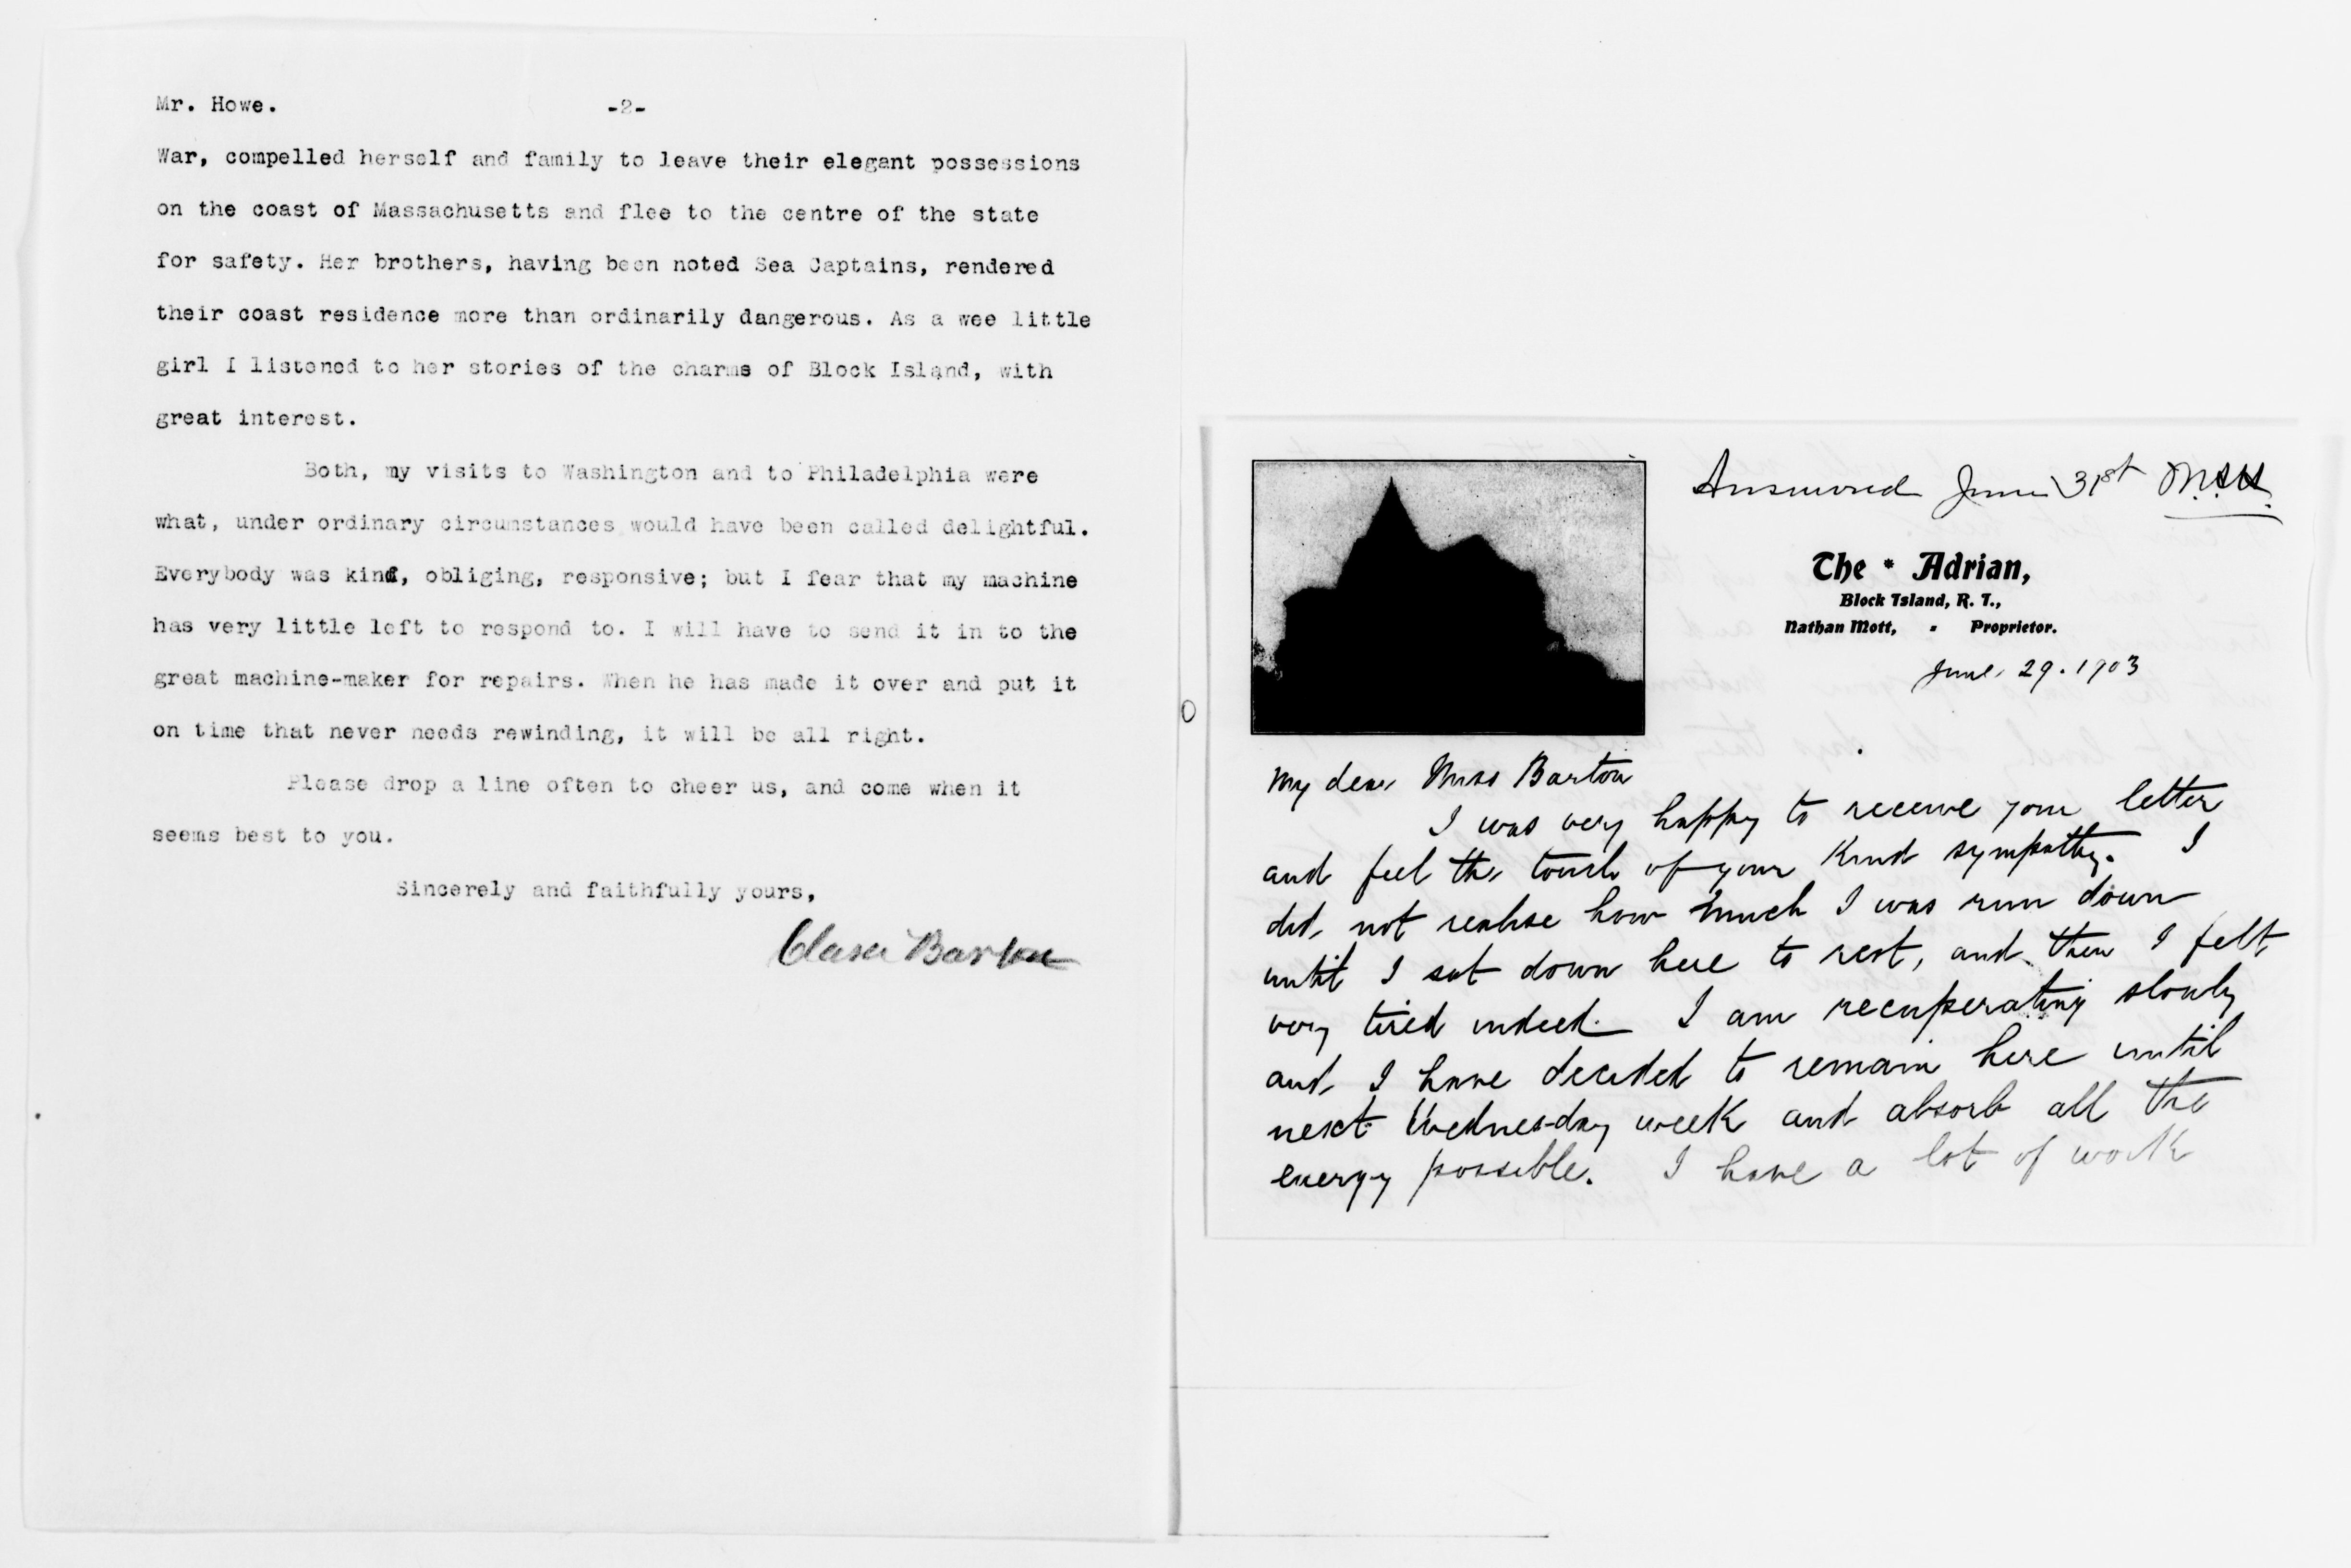 Mr. Howe. -2-
War, compelled herself and family to leave their elegant possessions
on the coast of Massachusetts and flee to the centre of the state
for safety. Her brothers, having been noted Sea Captains, rendered
their coast residence more than ordinarily dangerous. As a wee little
girl I listened to her stories of the charms of Block Island, with
great interest.
Both, my visits to Washington and to Philadelphia were
what, under ordinary circumstances would have been called delightful.
Everybody was kind, obliging, responsive; but I fear that my machine
has very little left to respond to. I will have to send it in to the
great machine-maker for repairs. When he has made it over and put it
on time that never needs rewinding, it will be all right.
Please drop a line often to cheer us, and come when it
seems best to you.
Sincerely and faithfully yours,
Clara Barton
Answered June 31st
The * Adrian,
Block Island, R. I.,
Nathan Mott, - Proprietor.
June 29. 1903
My dear Miss Barton
I was very happy to receive your letter
and feel the touch of your kind sympathy. I
did not realise how much I was run down
until I sat down here to rest, and then I felt
very tired indeed. I am recuperating slowly
and I have decided to remain here until
next Wednesday week and absorb all the
energy possible. I have a lot of work